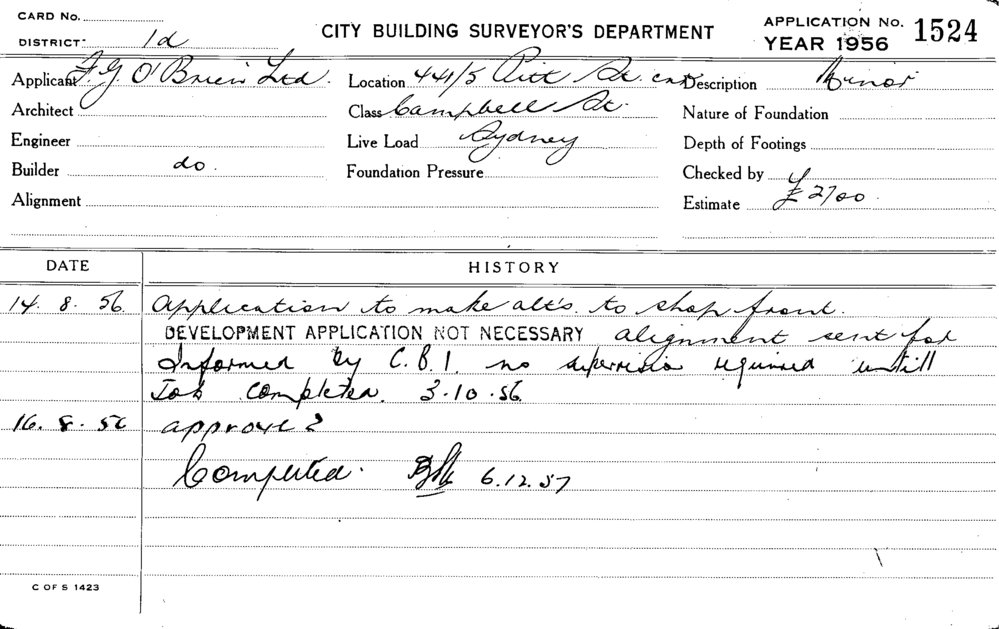 CARD No.
DISTRICT 1d
CITY BUILDING SURVEYOR'S DEPARTMENT
APPLICATION No. 1524
YEAR 1956
Applicant F. G. O'Brien Ltd. Location 441/5 Pitt St. cnr Description Minor
Architect Class Campbell St. Nature of Foundation
Engineer Live Load Sydney Depth of Footings
Builder do. Foundation Pressure Checked by
Alignment Estimate £2700
DATE HISTORY
14. 8. 56 Application to make alt's. to shop front.
DEVELOPMENT APPLICATION NOT NECESSARY alignment sent for
Informed by C.B.I. no supervision required untill
Job completed. 3.10.56
16. 8. 56 approve
Completed. 6.12.57
C OF S 1423